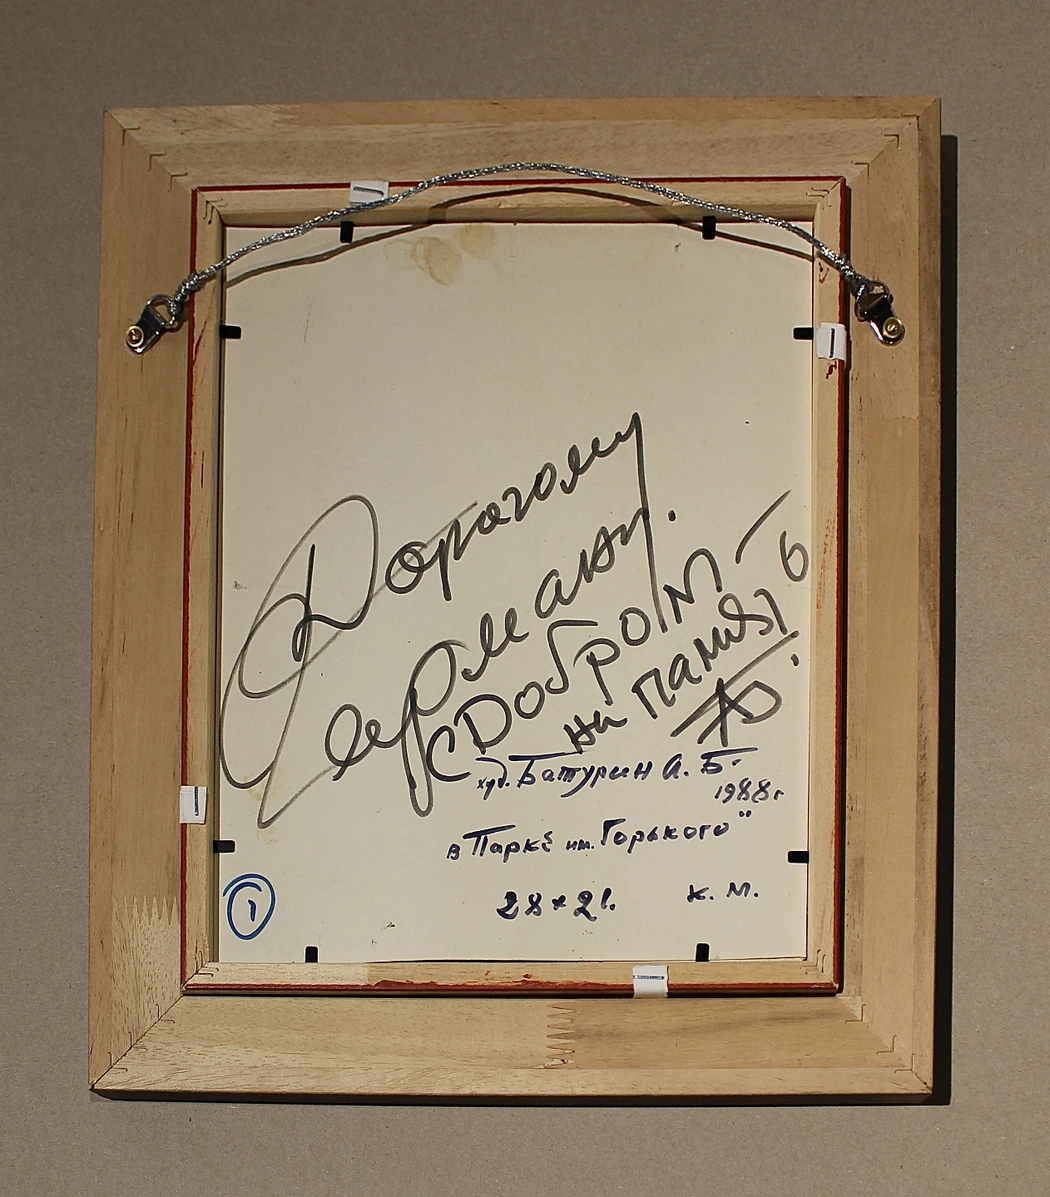 Дорогому
Герману.
С ДОБРОМ —
на память
худ. Батурин А. Б.
1988г
в Парке им. Горького"
28×21.
к. м.
1